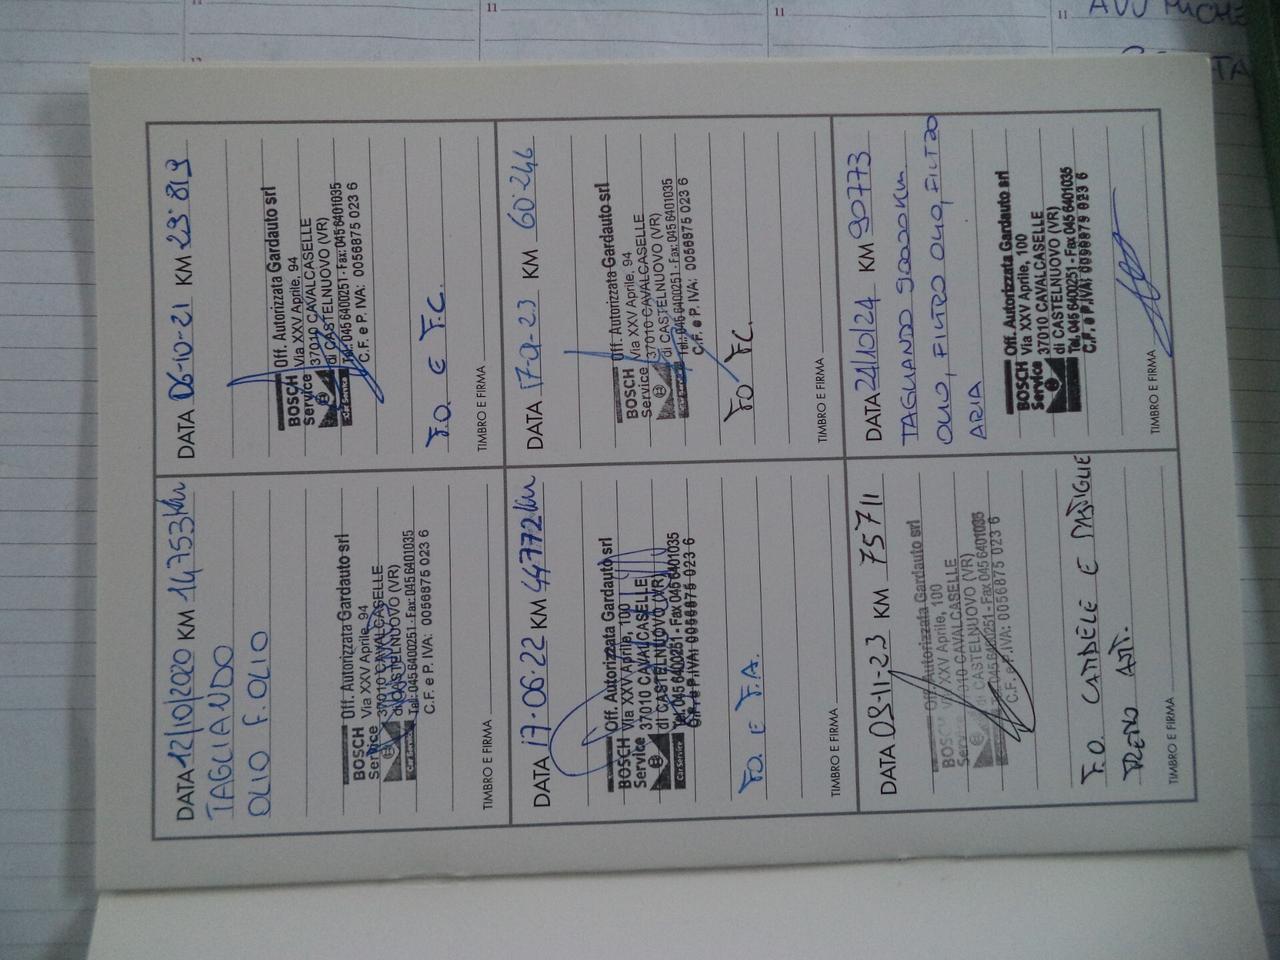 DATA 12/10/2020 KM 14753Km
TAGLIANDO
OLIO F.OLIO
BOSCH Off. Autorizzata Gardauto srl
Service Via XXV Aprile, 94
37010 CAVALCASELLE
di CASTELNUOVO (VR)
Car Service Tel.: 045 6400251 - Fax: 045 6401035
C.F. e P. IVA: 0056875 023 6
TIMBRO E FIRMA
DATA 06-10-21 KM 29·819
BOSCH Off. Autorizzata Gardauto srl
Service Via XXV Aprile, 94
37010 CAVALCASELLE
di CASTELNUOVO (VR)
Car Service Tel.: 045 6400251 - Fax: 045 6401035
C.F. e P. IVA: 0056875 023 6
F.O. E F.C.
TIMBRO E FIRMA
DATA 17·06·22 KM 44772Km
BOSCH Off. Autorizzata Gardauto srl
Service Via XXV Aprile, 100
37010 CAVALCASELLE
di CASTELNUOVO (VR)
Car Service Tel. 045 6400251 - Fax 045 6401035
C.F. e P.IVA: 0056875 023 6
F.O. E F.A.
TIMBRO E FIRMA
DATA KM 60·246
BOSCH Off. Autorizzata Gardauto srl
Service Via XXV Aprile, 94
37010 CAVALCASELLE
di CASTELNUOVO (VR)
Car Service Tel.: 045 6400251 - Fax: 045 6401035
C.F. e P. IVA: 0056875 023 6
FO FC.
TIMBRO E FIRMA
DATA 08-11-23 KM 75711
BOSCH Off. Autorizzata Gardauto srl
Service Via XXV Aprile, 100
37010 CAVALCASELLE
di CASTELNUOVO (VR)
Tel. 045 6400251 - Fax 045 6401035
C.F. e P.IVA: 0056875 023 6
F.O. CANDELE E PASTIGLIE
FRENO ANT.
TIMBRO E FIRMA
DATA 24/10/24 KM 90773
TAGLIANDO 90000Km
OLIO, FILTRO OLIO, FILTRO
ARIA
BOSCH Off. Autorizzata Gardauto srl
Service Via XXV Aprile, 100
37010 CAVALCASELLE
di CASTELNUOVO (VR)
Car Service Tel. 045 6400251 - Fax 045 6401035
C.F. e P.IVA: 0056875 023 6
TIMBRO E FIRMA
11
11
11
11
AVV